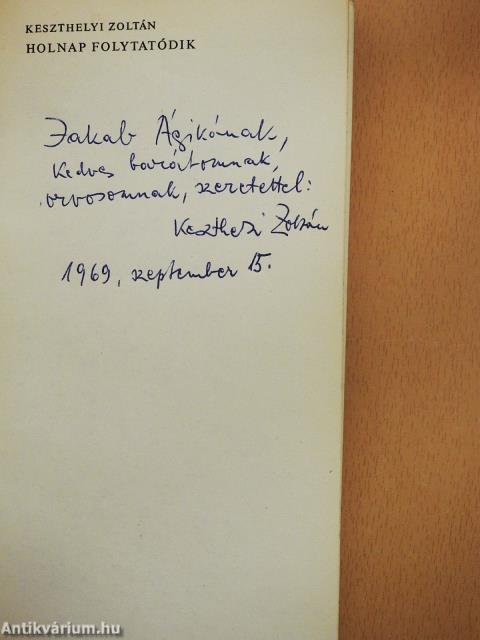 KESZTHELYI ZOLTÁN
HOLNAP FOLYTATÓDIK
Jakab Ágikának,
kedves barátomnak,
orvosomnak, szeretettel:
Keszthelyi Zoltán
1969, szeptember 15.
Antikvárium.hu